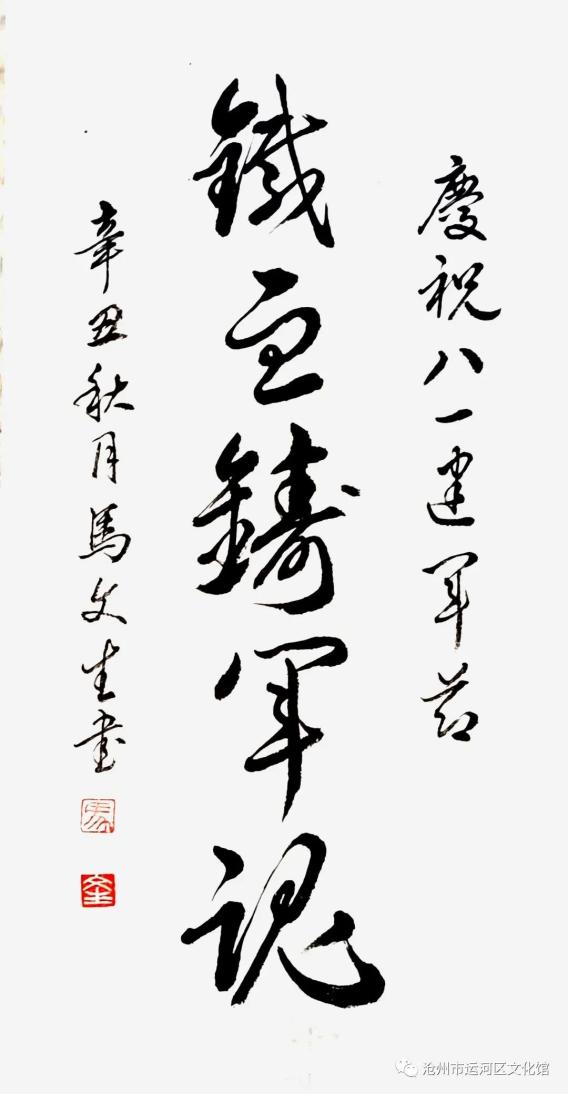 慶祝八一建軍節
鐵血鑄軍魂
辛丑秋月馬文生書
馬
文生
沧州市运河区文化馆